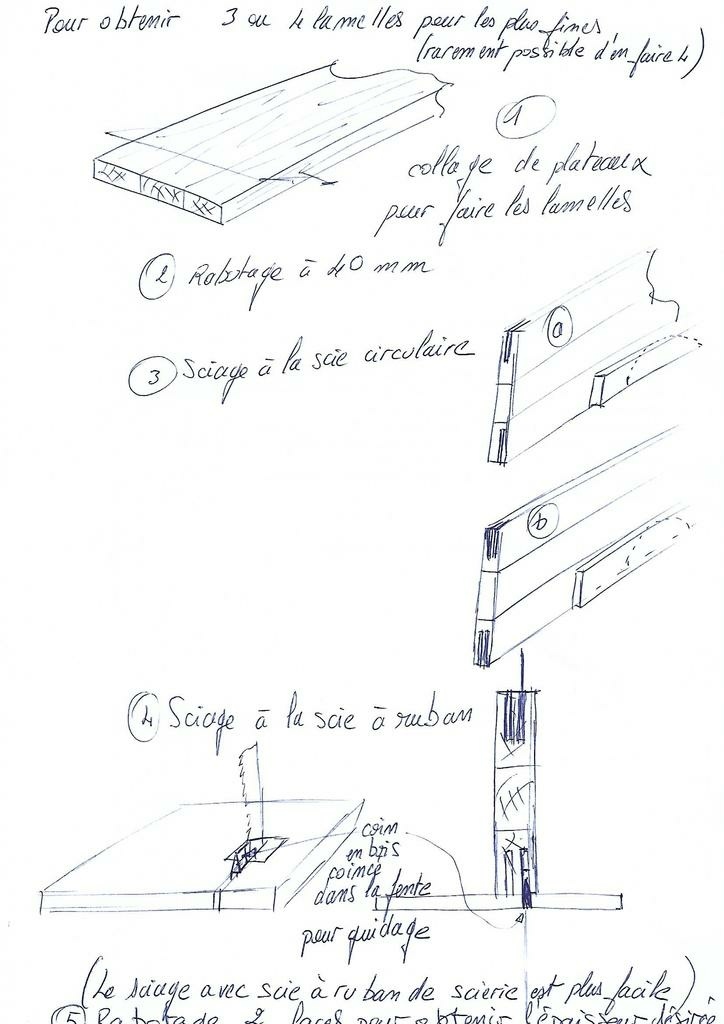 Pour obtenir 3 ou 4 lamelles pour les plus fines
(rarement possible d'en faire 4)
1
collage de plateaux
pour faire les lamelles
2 Rabotage à 40 mm
3 Sciage à la scie circulaire
a
b
4 Sciage à la scie à ruban
coin
en bois
coincé
dans la fente
pour guidage
(Le sciage avec scie à ruban de scierie est plus facile)
5 Rabotage 2 faces pour obtenir l'épaisseur désirée